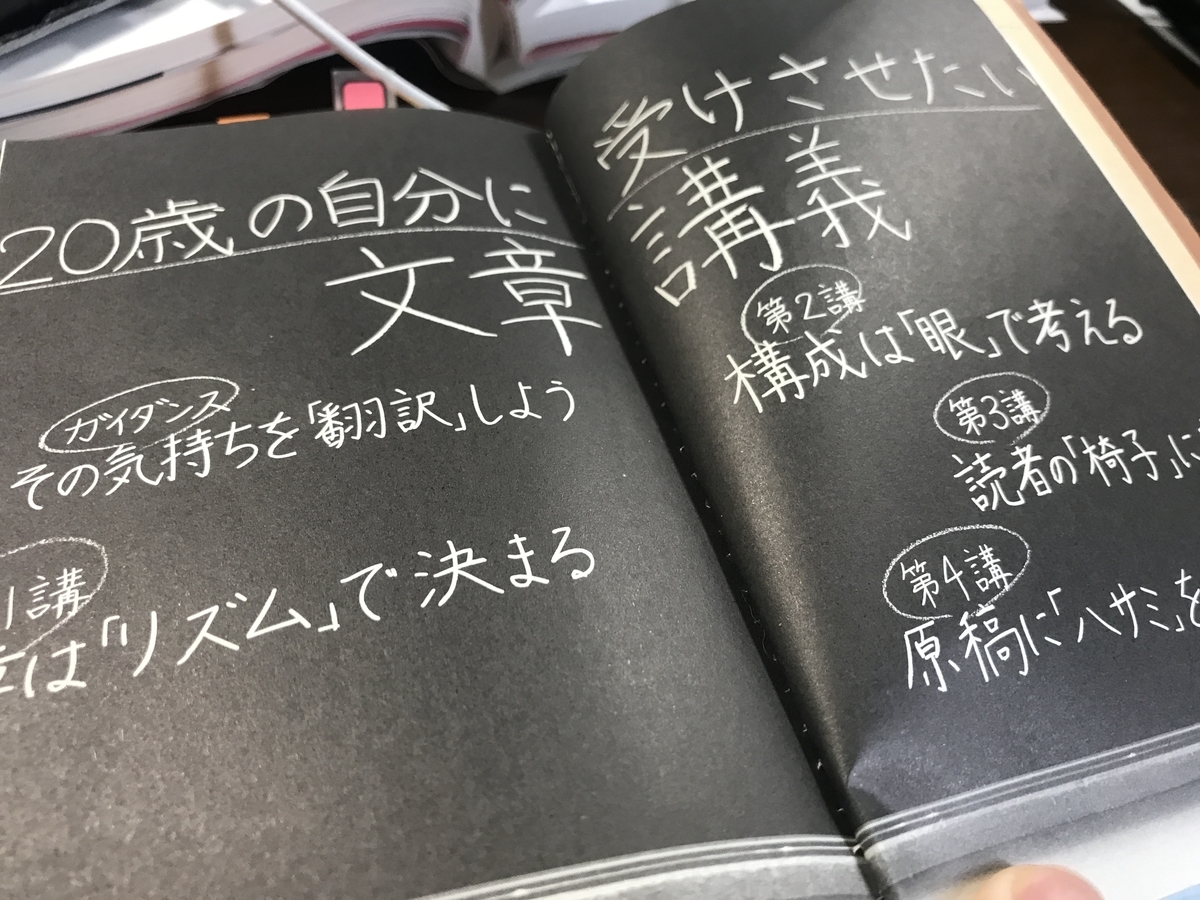 20歳の自分に受けさせたい
文章講義
ガイダンス
その気持ちを「翻訳」しよう
1講
は「リズム」で決まる
第2講
構成は「眼」で考える
第3講
読者の「椅子」に
第4講
原稿に「ハサミ」を